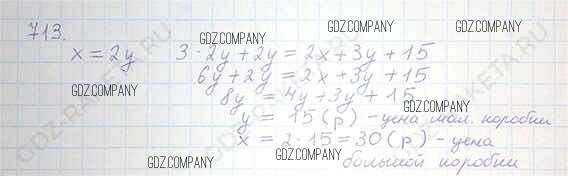 713.
x = 2y 3·2y + 2y = 2x + 3y + 15
6y + 2y = 2x + 3y + 15
8y = 4y + 3y + 15
y = 15 (р) - цена мал. коробки
x = 2·15 = 30 (р) - цена
большой коробки
GDZ.COMPANY
GDZ.COMPANY
GDZ.COMPANY
GDZ.COMPANY
GDZ.COMPANY
GDZ.COMPANY
GDZ.COMPANY
GDZ-RAKETA.RU
GDZ-RAKETA.RU